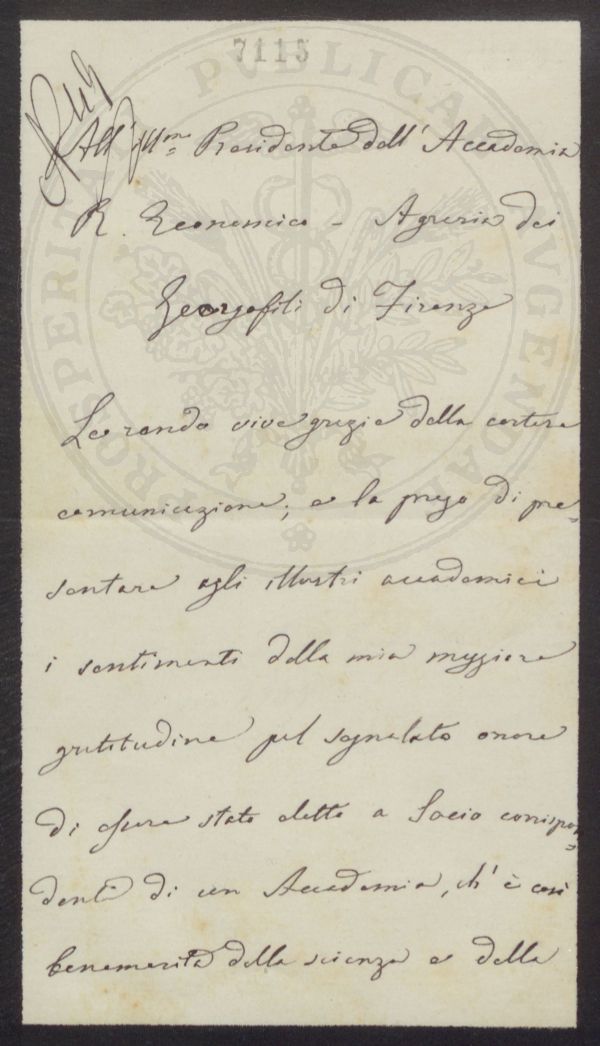 7115
All' Illmo Presidente dell' Accademia
R. Economico - Agraria dei
Georgofili di Firenze
Le rendo vive grazie della cortese
comunicazione; e la prego di pre=
sentare agli illustri accademici
i sentimenti della mia maggiore
gratitudine pel segnalato onore
di essere stato eletto a Socio corrispon=
dente di un Accademia, ch' è così
benemerita della scienza e della
PROSPERITATI PUBLICAE AUGENDAE